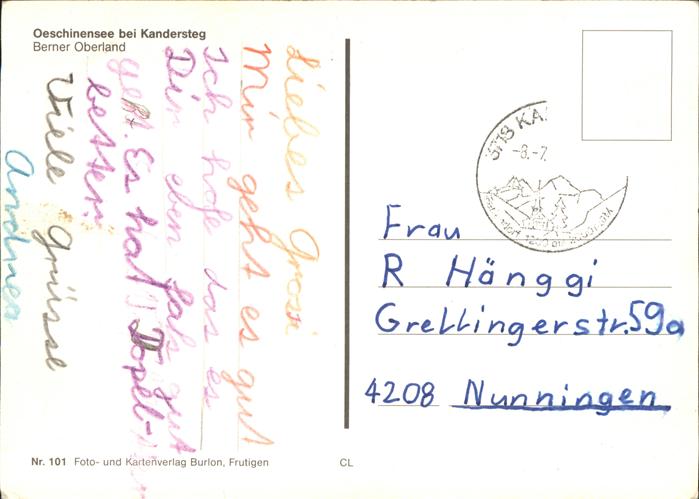 Oeschinensee bei Kandersteg
Berner Oberland
Liebes Grosi
Mir geht es gut
ich hofe das es
Dir eben fals gut
geht. Es hat Dopel-
betten.
Viele Grüsse
Andrea
3718 KA
-8.-7.
Frau
R Hänggi
Grellingerstr.59a
4208 Nunningen
Nr. 101 Foto- und Kartenverlag Burlon, Frutigen
CL